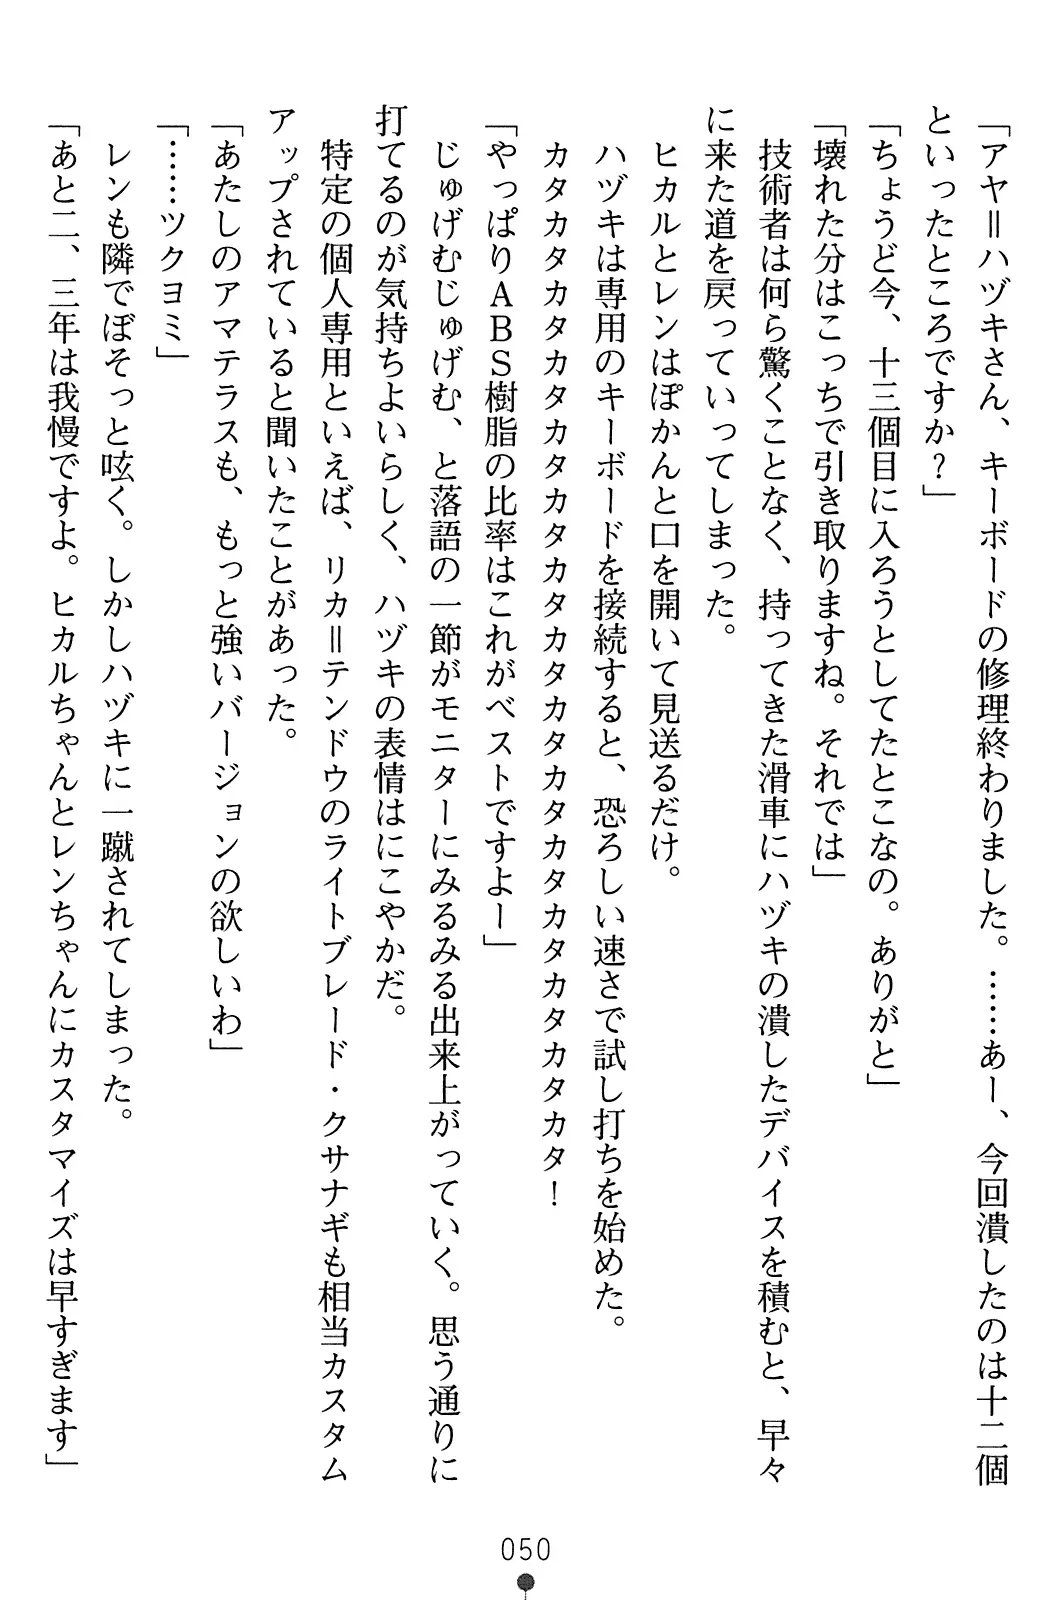 「アヤ＝ハヅキさん、キーボードの修理終わりました。……あー、今回潰したのは十二個
といったところですか？」
「ちょうど今、十三個目に入ろうとしてたとこなの。ありがと」
「壊れた分はこっちで引き取りますね。それでは」
　技術者は何ら驚くことなく、持ってきた滑車にハヅキの潰したデバイスを積むと、早々
に来た道を戻っていってしまった。
　ヒカルとレンはぽかんと口を開いて見送るだけ。
　ハヅキは専用のキーボードを接続すると、恐ろしい速さで試し打ちを始めた。
　カタカタカタカタカタカタカタカタカタカタカタカタカタカタカタ！
「やっぱりＡＢＳ樹脂の比率はこれがベストですよー」
　じゅげむじゅげむ、と落語の一節がモニターにみるみる出来上がっていく。思う通りに
打てるのが気持ちよいらしく、ハヅキの表情はにこやかだ。
　特定の個人専用といえば、リカ＝テンドウのライトブレード・クサナギも相当カスタム
アップされていると聞いたことがあった。
「あたしのアマテラスも、もっと強いバージョンの欲しいわ」
「……ツクヨミ」
　レンも隣でぼそっと呟く。しかしハヅキに一蹴されてしまった。
「あと二、三年は我慢ですよ。ヒカルちゃんとレンちゃんにカスタマイズは早すぎます」
050